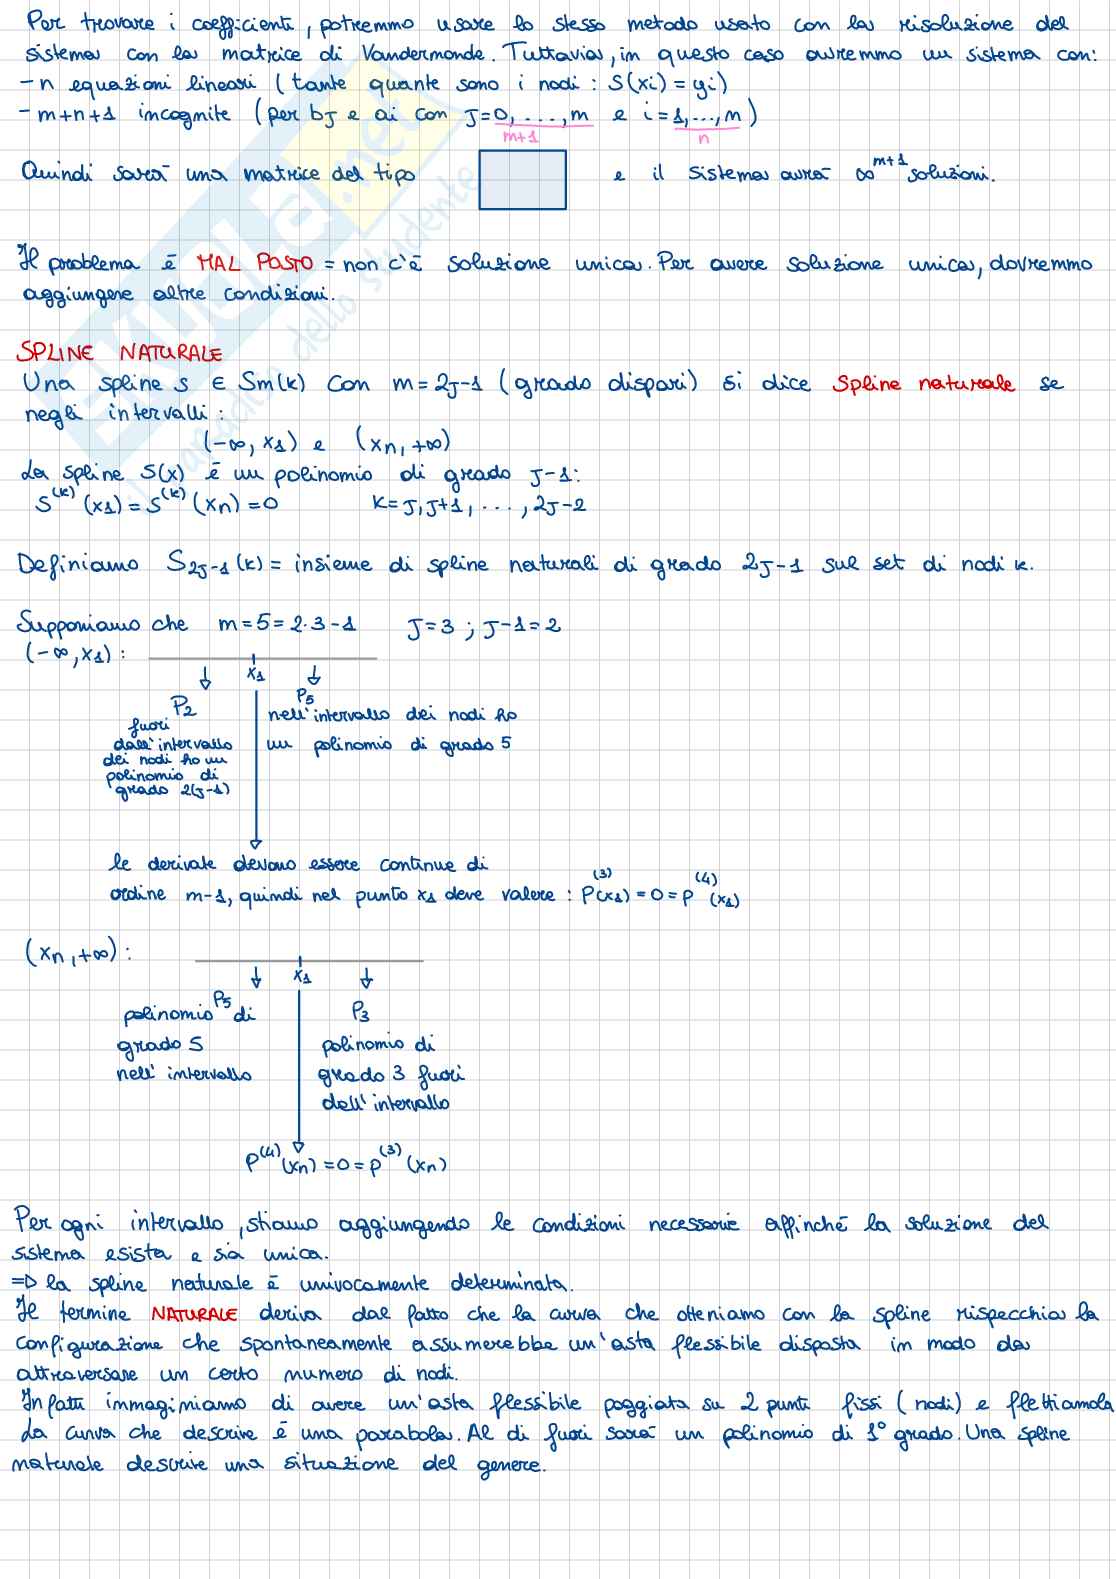 Per trovare i coefficienti, potremmo usare lo stesso metodo usato con la risoluzione del
sistema con la matrice di Vandermonde. Tuttavia, in questo caso avremmo un sistema con:
- n equazioni lineari (tante quante sono i nodi: S(xi) = yi)
- m+n+1 incognite (per bJ e ai con J=0,...,m e i=1,...,m)
m+1 n
Quindi sarà una matrice del tipo e il sistema avrà ∞^m+1 soluzioni.
Il problema è MAL POSTO = non c'è soluzione unica. Per avere soluzione unica, dovremmo
aggiungere altre condizioni.
SPLINE NATURALE
Una spline s ∈ Sm(k) con m = 2J-1 (grado dispari) si dice Spline naturale se
negli intervalli:
(-∞, x1) e (xn, +∞)
La spline S(x) è un polinomio di grado J-1:
S^(k)(x1) = S^(k)(xn) = 0 K=J, J+1, ..., 2J-2
Definiamo S2J-1(k) = insieme di spline naturali di grado 2J-1 sul set di nodi k.
Supponiamo che m=5=2·3-1 J=3 ; J-1=2
(-∞, x1):
x1
P2
fuori
dall'intervallo
dei nodi ho un
polinomio di
grado 2(J-1)
P5
nell'intervallo dei nodi ho
un polinomio di grado 5
le derivate devono essere continue di
ordine m-1, quindi nel punto x1 deve valere: P^(3)(x1) = 0 = P^(4)(x1)
(xn, +∞):
x1
P5
polinomio di
grado 5
nell'intervallo
P3
polinomio di
grado 3 fuori
dall'intervallo
P^(4)(xn) = 0 = P^(3)(xn)
Per ogni intervallo, stiamo aggiungendo le condizioni necessarie affinché la soluzione del
sistema esista e sia unica.
=> la spline naturale è univocamente determinata.
Il termine NATURALE deriva dal fatto che la curva che otteniamo con la spline rispecchia la
configurazione che spontaneamente assumerebbe un'asta flessibile disposta in modo da
attraversare un certo numero di nodi.
Infatti immaginiamo di avere un'asta flessibile poggiata su 2 punti fissi (nodi) e flettiamola
La curva che descrive è una parabola. Al di fuori sarà un polinomio di 1° grado. Una spline
naturale descrive una situazione del genere.